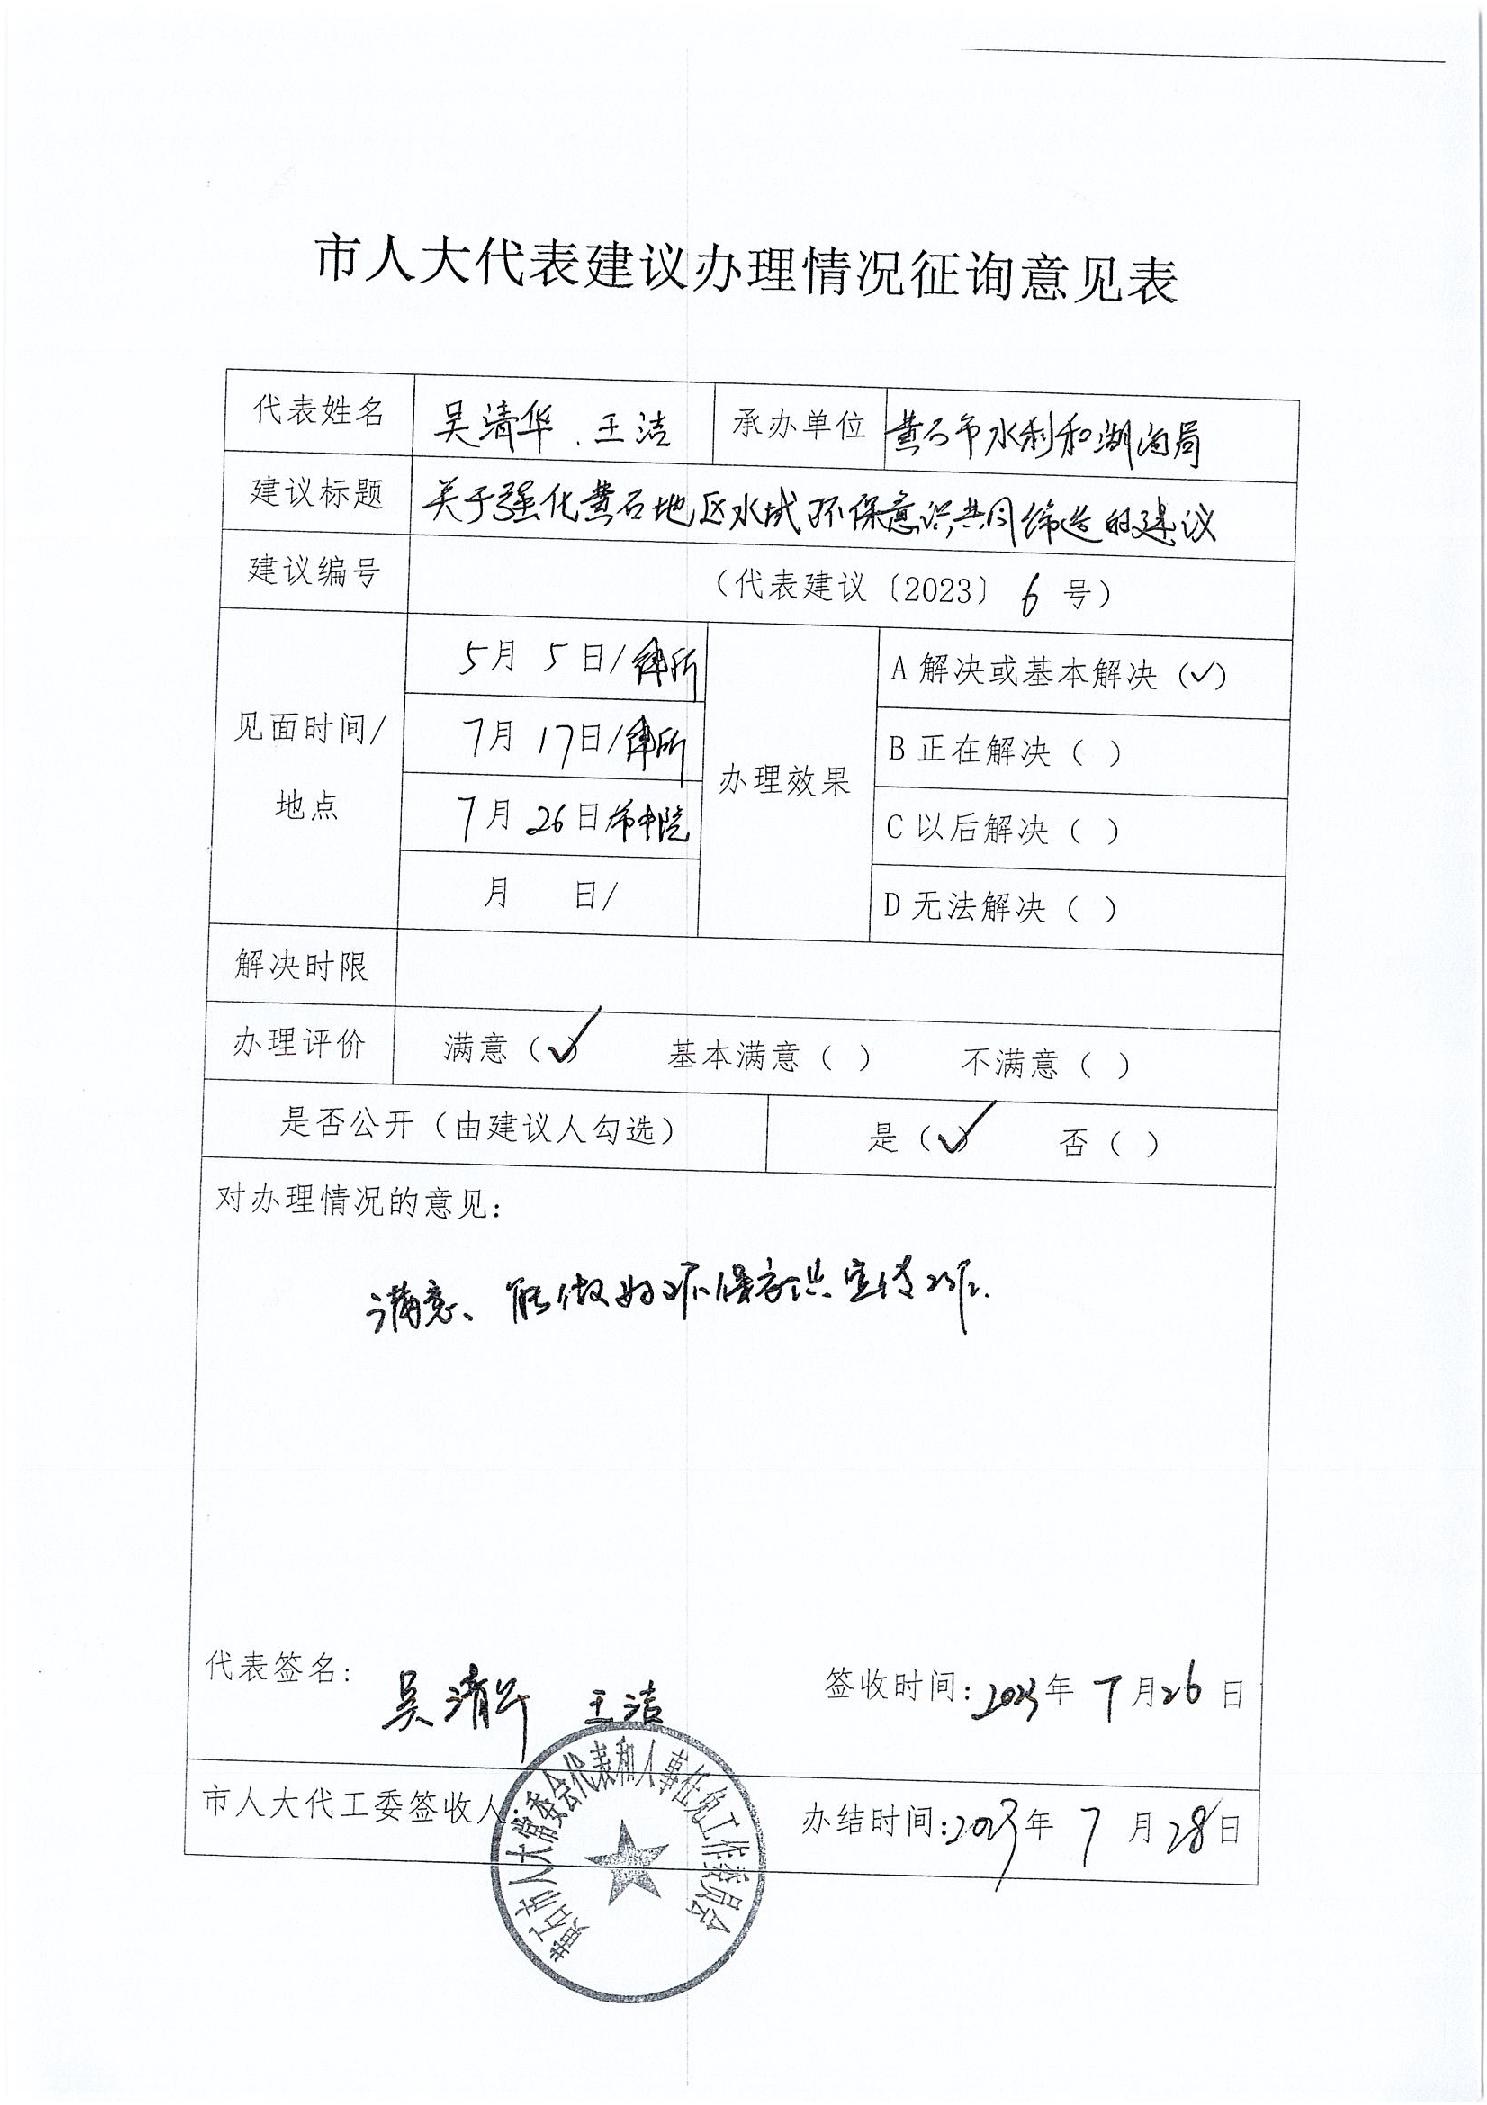 市人大代表建议办理情况征询意见表
代表姓名 吴清华、王洁 承办单位 黄石市水利和湖泊局
建议标题 关于强化黄石地区水域环保意识共同缔造的建议
建议编号 （代表建议〔2023〕6号）
见面时间/地点
5月5日/律所
7月17日/律所
7月26日市中院
月 日/
办理效果
A 解决或基本解决（✓）
B 正在解决（ ）
C 以后解决（ ）
D 无法解决（ ）
解决时限
办理评价 满意（✓） 基本满意（ ） 不满意（ ）
是否公开（由建议人勾选） 是（✓） 否（ ）
对办理情况的意见：
满意、能做好环保意识宣传工作.
代表签名： 吴清华 王洁 签收时间：2023年7月26日
市人大代工委签收人 办结时间：2023年7月28日
黄石市人大常委会代表和人事任免工作委员会